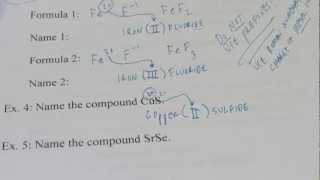 Formula 1: Fe²⁺ F⁻¹ FeF₂
Name 1: IRON (II) FLUORIDE
Formula 2: Fe³⁺ F⁻¹ FeF₃
Name 2: IRON (III) FLUORIDE
DO NOT
USE PREFIXES!
USE ROMAN
CHARGE
Ex. 4: Name the compound CuS.
COPPER (II) SULFIDE
Ex. 5: Name the compound SrSe.